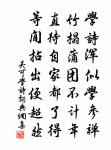 學詩渾似學參禪
竹榻蒲團不計年
直待自家都了得
等閒拈出便超然
吳可學詩詩與網壬